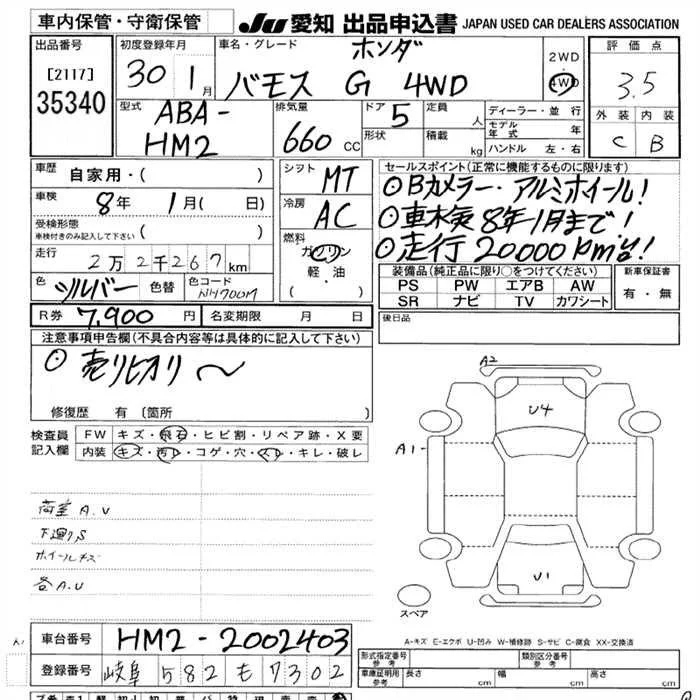 車内保管・守衛保管 JU 愛知 出品申込書 JAPAN USED CAR DEALERS ASSOCIATION
出品番号 初度登録年月 車名・グレード 評価点
[2117] 30 1月 ホンダ 2WD・4WD 3.5
35340 バモス G 4WD
型式 排気量 ドア 定員 ディーラー・並行 外装 内装
ABA-HM2 660CC 5 人 モデル年式 年 C B
形状 積載 kg ハンドル 左・右
車歴 自家用・( ) シフト MT セールスポイント(正常に機能するものに限ります)
車検 8年 1月( 日) 冷房 AC ◎Bカメラー・アルミホイール!
受検形態 ◎車検8年1月まで!
車検付きのみ記入して下さい ( ) 燃料 ガソリン ◎走行20000km台!
走行 2万2千267km 軽・油
色 シルバー 色替 色コード NH700M ( )
装備品(純正品に限り○をつけてください) 新車保証書
PS PW エアB AW 有・無
SR ナビ TV カワシート
R券 7,900円 名変期限 月 日 後日品
注意事項申告欄(不具合内容等は具体的に記入して下さい)
◎売りヒオリ〜
修復歴 有 〔箇所 〕
検査員記入欄 FW キズ・飛石・ヒビ割・リペア跡・X要
内装 キズ・汚レ・コゲ・穴・スレ・キレ・破レ
荷室A.U
下廻りS
ホイールキズ
各A.U
A2
U4
A1
U1
スペア
A-キズ E-エクボ U-凹み W-補修跡 S-サビ C-腐食 XX-交換済
車台番号 HM2-2002403
登録番号 岐阜 582 も 7302
形式指定番号 参考 類別区分番号 参考
車庫証明用 参考 長さ cm 幅 cm 高さ cm